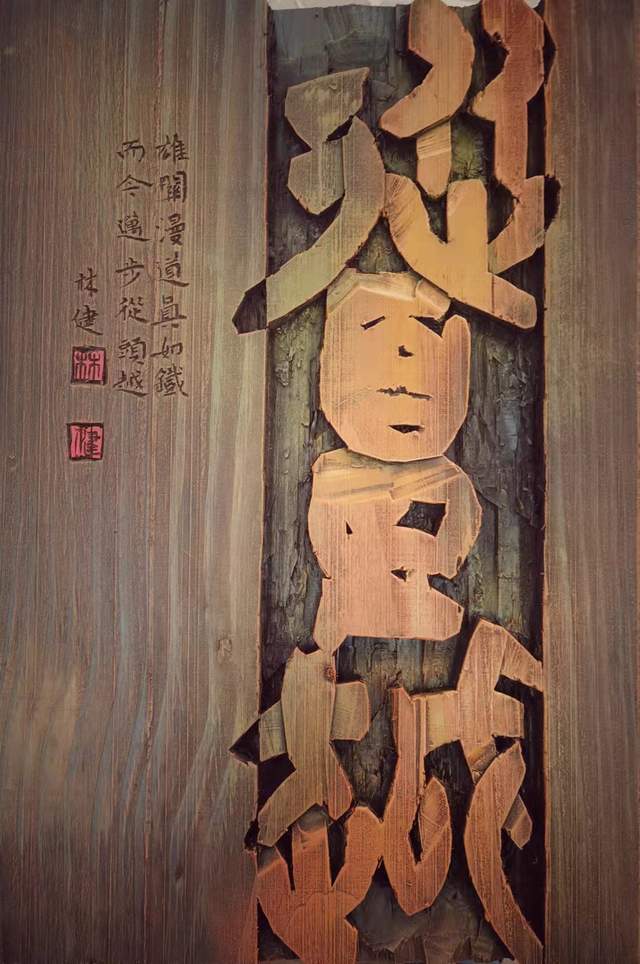 從頭越
雄關漫道真如鐵
而今邁步從頭越
林健
林
健